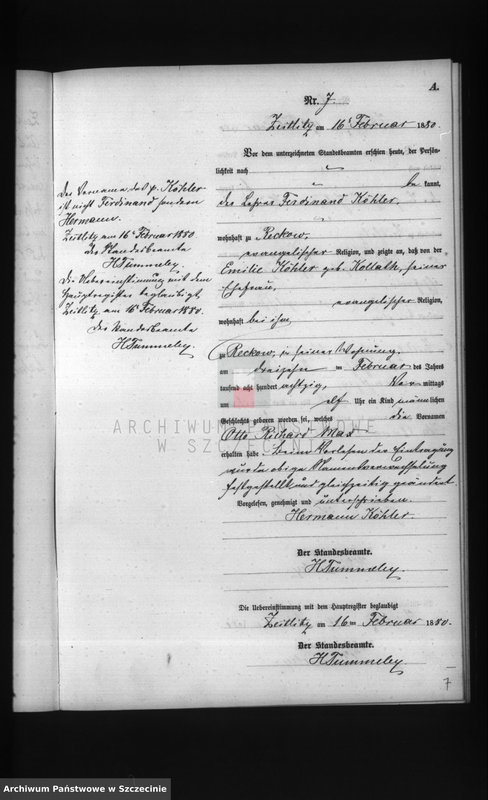 A.
Nr. 7
Zeitlitz am 16t Februar 1880.
Vor dem unterzeichneten Standesbeamten erschien heute, der Persön-
lichkeit nach
be kannt,
Ferdinand Köhler,
wohnhaft zu Reckow,
evangelischer Religion, und zeigte an, daß von der
Emilie Köhler geb. Kollath, seiner
Ehefrau,
evangelischer Religion,
wohnhaft bei ihm,
zu Reckow, in seiner Wohnung,
am dreizehn ten Februar des Jahres
tausend acht hundert achtzig, Vor mittags
um elf Uhr ein Kind männlichen
Geschlechts geboren worden sei, welches die Vornamen
Otto Richard Max
erhalten habe. Beim Vorlesen der Eintragung
wurde obige Namensverwechselung
festgestellt und gleichzeitig geändert
Vorgelesen, genehmigt und unterschrieben.
Hermann Köhler.
Der Standesbeamte.
H Tummeley.
Die Uebereinstimmung mit dem Hauptregister beglaubigt
Zeitlitz am 16ten Februar 1880.
Der Standesbeamte.
H Tummeley.
Der Vorname des p. Köhler
ist nicht Ferdinand sondern
Hermann.
Zeitlitz am 16t Februar 1880.
Der Standesbeamte
H Tummeley.
Die Uebereinstimmung mit dem
Hauptregister beglaubigt,
Zeitlitz, am 16t Februar 1880.
Der Standesbeamte
H Tummeley.
7
ARCHIWUM PAŃSTWOWE
W SZCZECINIE
Archiwum Państwowe w Szczecinie